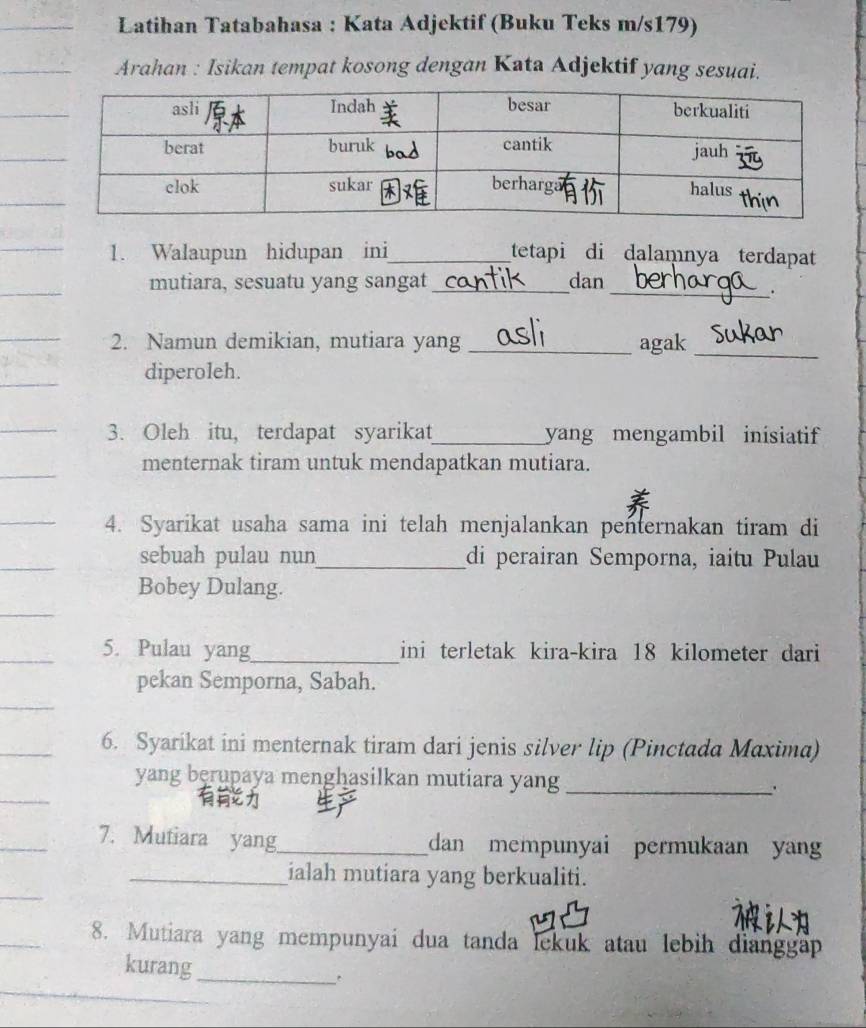 Latihan Tatabahasa : Kata Adjektif (Buku Teks m/s179)
Arahan : Isikan tempat kosong dengan Kata Adjektif yang sesuai.
asli 原本 Indah 美 besar berkualiti
berat buruk bad cantik jauh 远
elok sukar 困难 berharga 有价 halus thin
1. Walaupun hidupan ini__________tetapi di dalamnya terdapat
mutiara, sesuatu yang sangat cantik dan berharga.
2. Namun demikian, mutiara yang asli agak sukar
diperoleh.
3. Oleh itu, terdapat syarikat__________yang mengambil inisiatif
menternak tiram untuk mendapatkan mutiara.
养
4. Syarikat usaha sama ini telah menjalankan penternakan tiram di
sebuah pulau nun__________di perairan Semporna, iaitu Pulau
Bobey Dulang.
5. Pulau yang__________ini terletak kira-kira 18 kilometer dari
pekan Semporna, Sabah.
6. Syarikat ini menternak tiram dari jenis silver lip (Pinctada Maxima)
yang berupaya menghasilkan mutiara yang __________.
有能力 生产
7. Mutiara yang__________dan mempunyai permukaan yang
__________ialah mutiara yang berkualiti.
凹凸 被认为
8. Mutiara yang mempunyai dua tanda lekuk atau lebih dianggap
kurang __________.